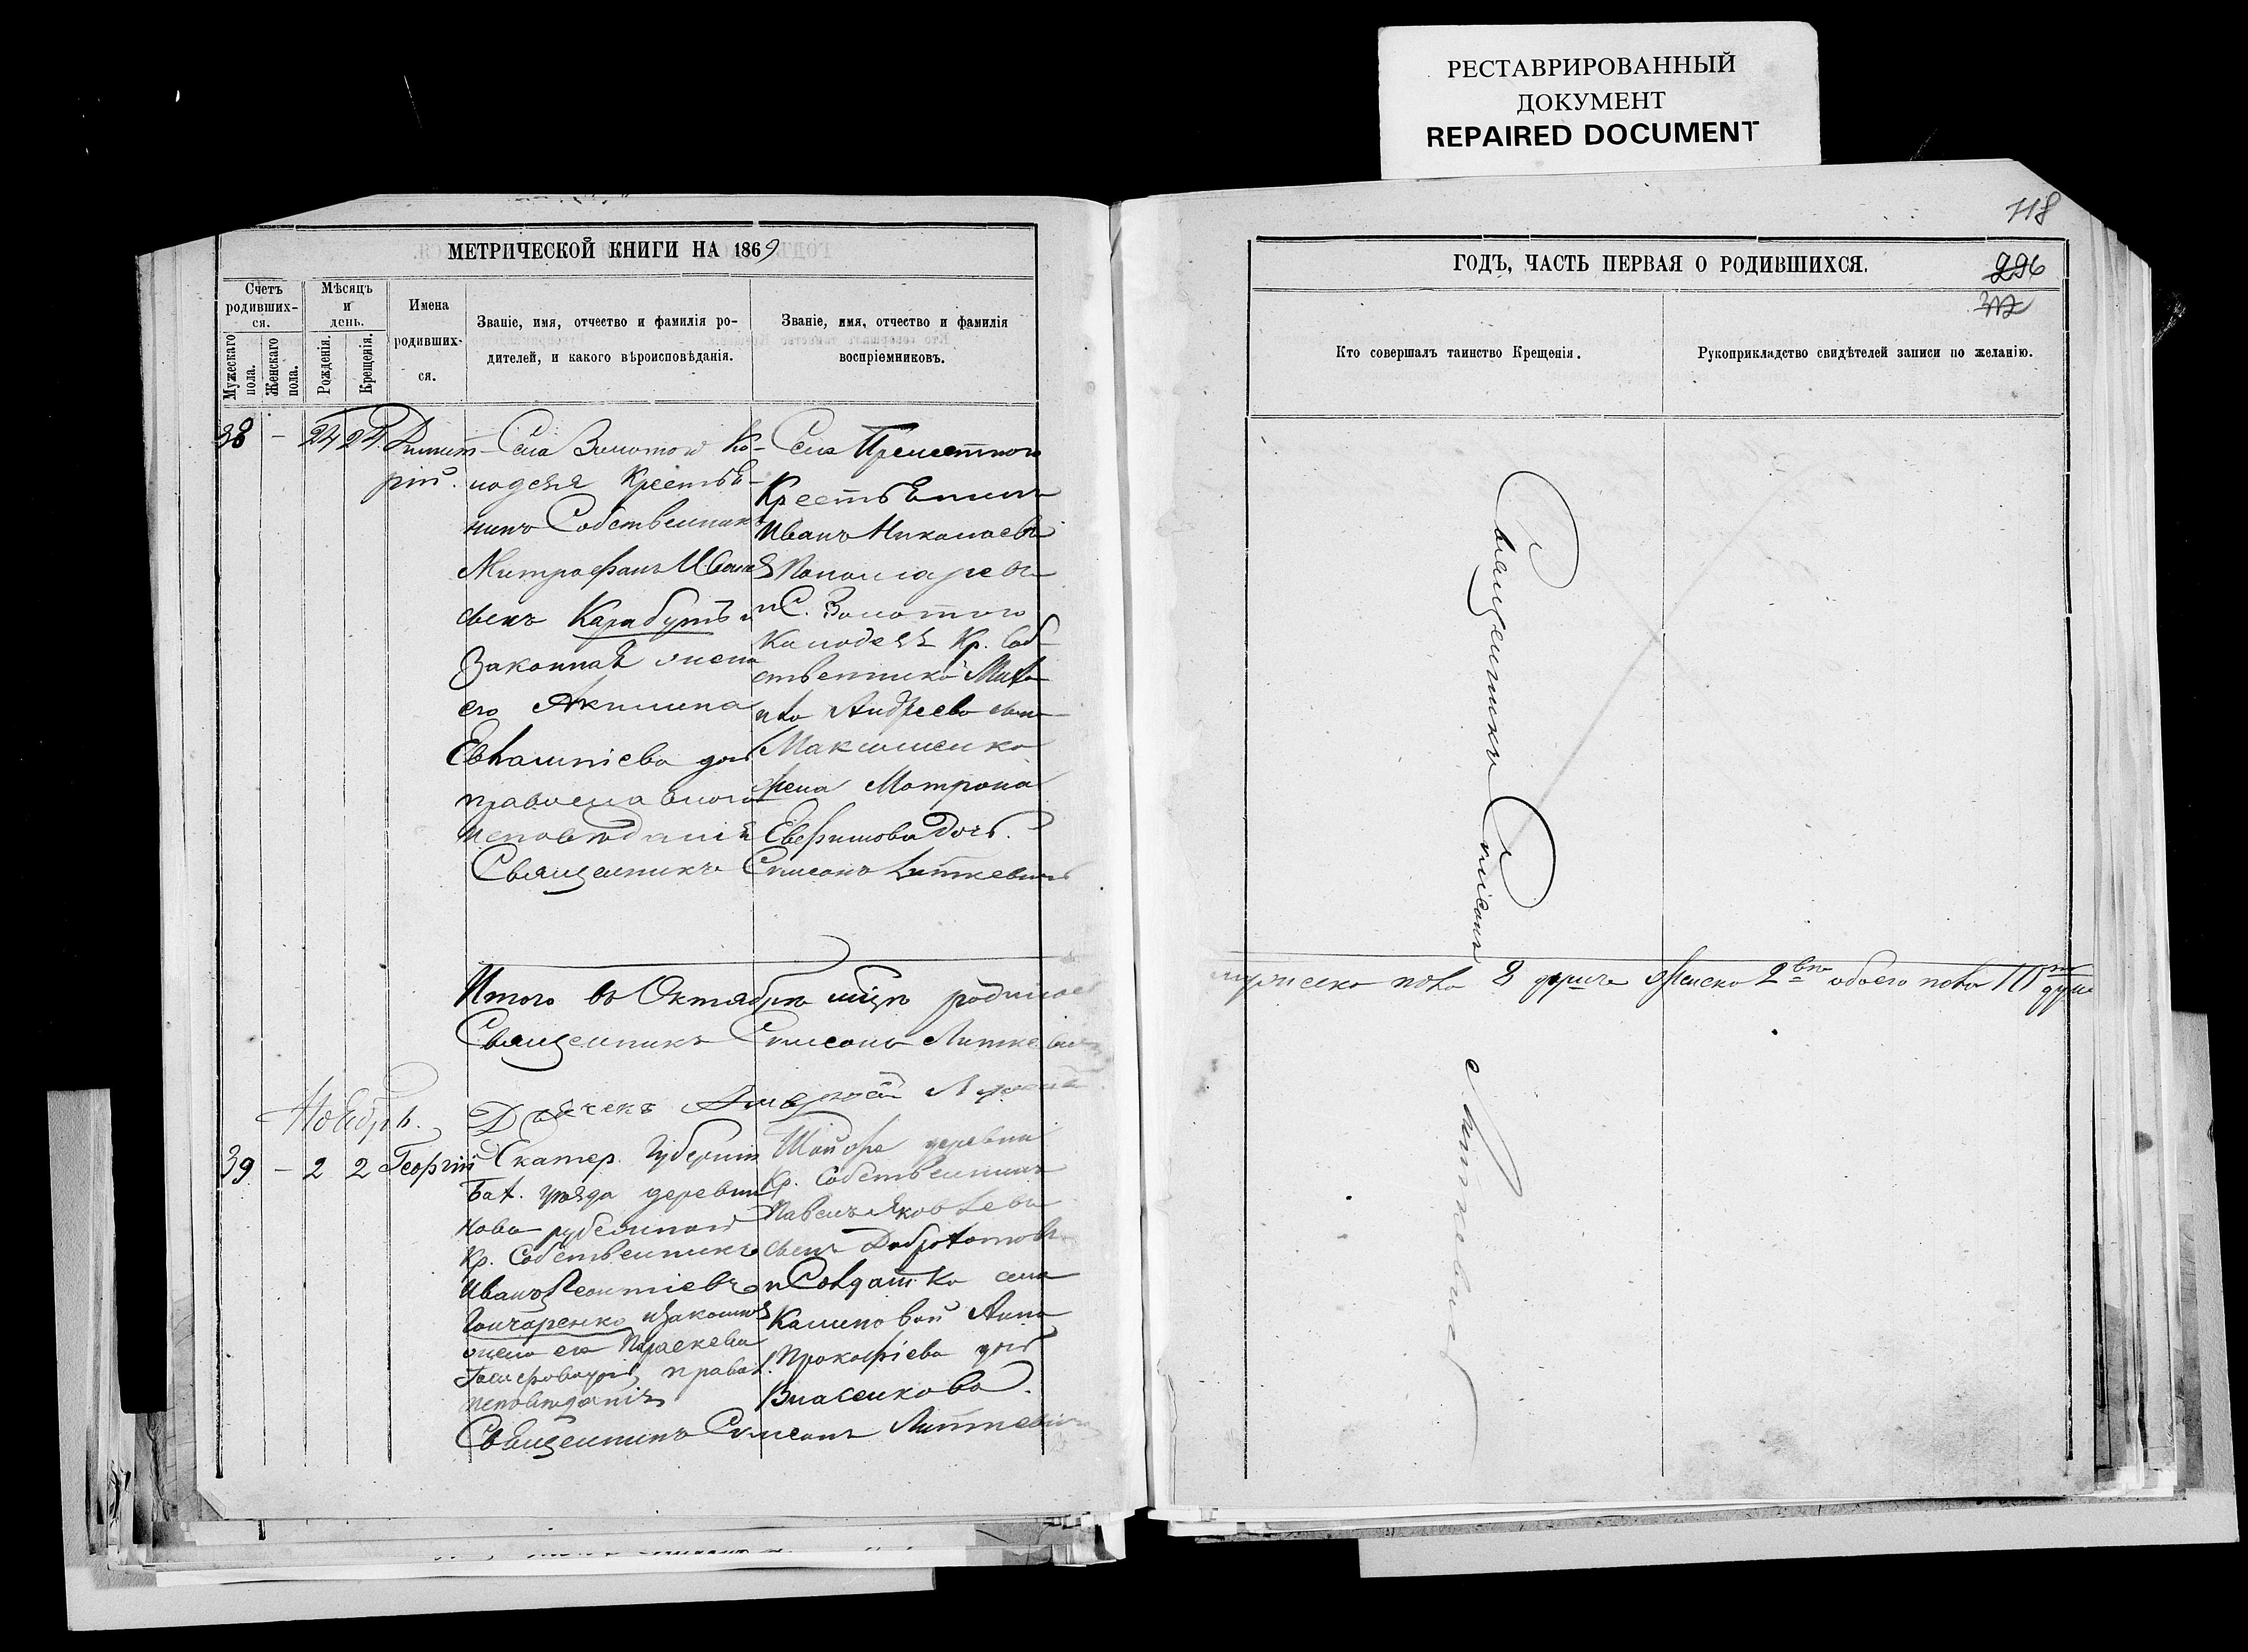 РЕСТАВРИРОВАННЫЙ
ДОКУМЕНТ
REPAIRED DOCUMENT
МЕТРИЧЕСКОЙ КНИГИ НА 1869
Счетъ родившихся.
Мужескаго пола.
Женскаго пола.
Мѣсяцъ и день.
Рожденія.
Крещенія.
Имена родившихся.
Званіе, имя, отчество и фамилія ро-
дителей, и какого вѣроисповѣданія.
Званіе, имя, отчество и фамилія
воспріемниковъ.
38 – 24 24
Димит-
рій.
Села Золотого Ко-
лодезя Крестья-
нинъ Собственникъ
Митрофанъ Ивано
Карабутъ и
Законная жена
его Акилина
Евлампіева
православнаго
исповѣданія
Села
Крестьянинъ
Иванъ Николаевъ
Пономаревъ
и С. Золотого
Колодезя Кр. Соб-
ственника
Андреева
Максименко
жена Матрона
дочь.
Священникъ Симеонъ Литкевичъ
Итого въ Октябрѣ мѣцѣ родилось
Священникъ Симеонъ Литкевичъ
Ноябрь.
39 – 2 2 Георгій
Екатер. Губерніи
Бах. уѣзда деревни
Кр. Собственникъ
Иванъ Леонтіевъ
Гончаренко и законная
жена его Параскева
правосл.
исповѣданія
деревни
Кр. Собственникъ
Павелъ Яковлевъ
сынъ
и Солдатка села
Анна
Прокофіева дочь
Власенкова.
Священникъ Симеонъ Литкевичъ
118
296
ГОДЪ, ЧАСТЬ ПЕРВАЯ О РОДИВШИХСЯ.
Кто совершалъ таинство Крещенія.
Рукоприкладство свидѣтелей записи по желанію.
Священникъ Симеонъ
Литкевичъ
мужеска пола 8 душъ женска 2 обоего пола 10 душъ